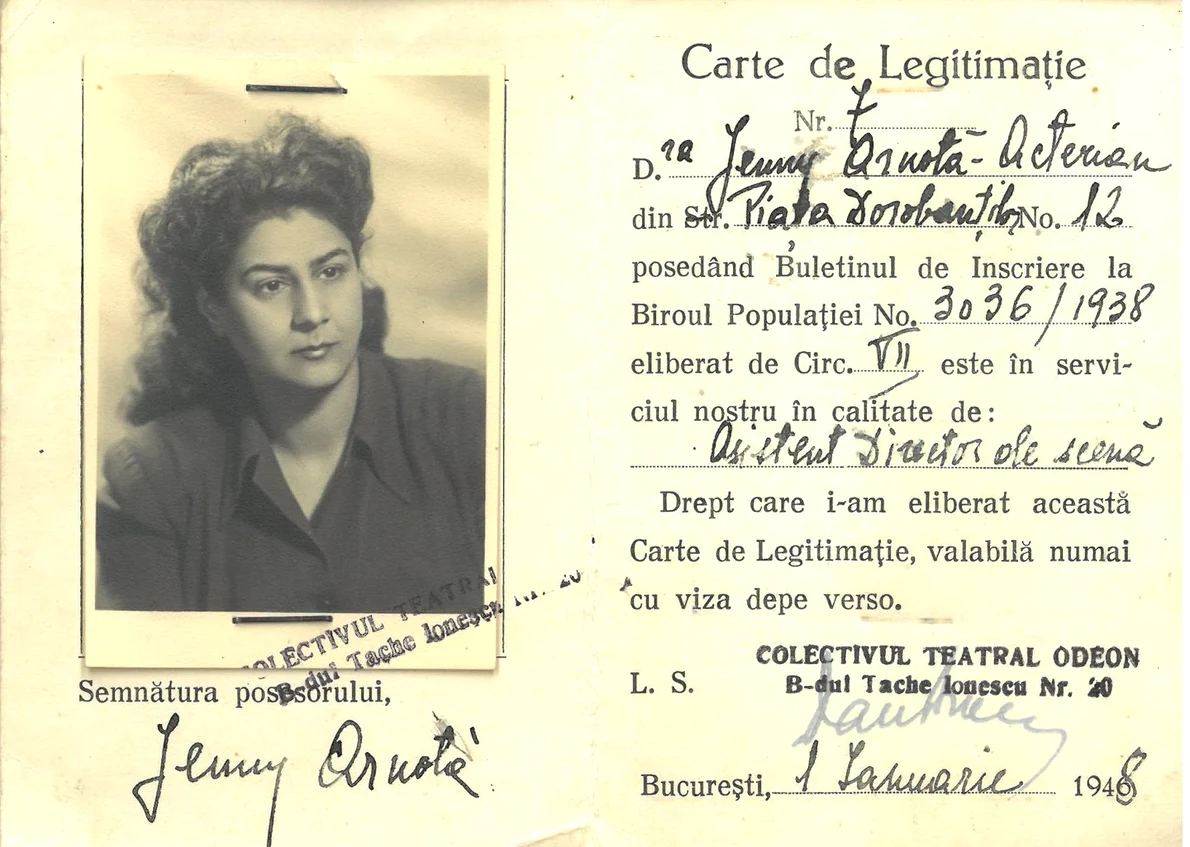 COLECTIVUL TEATRAL
B-dul Tache Ionescu Nr. 20
Semnătura posesorului,
Jenny Arnotă
Carte de Legitimație
Nr. 7
D.ra Jenny Arnotă-Acterian
din Str. Piața Dorobanților No. 12
posedând Buletinul de Inscriere la
Biroul Populației No. 3036/1938
eliberat de Circ. VII este în servi-
ciul nostru în calitate de:
Asistent Director de scenă
Drept care i-am eliberat această
Carte de Legitimație, valabilă numai
cu viza depe verso.
COLECTIVUL TEATRAL ODEON
L. S. B-dul Tache Ionescu Nr. 20
București, 1 Ianuarie 1948